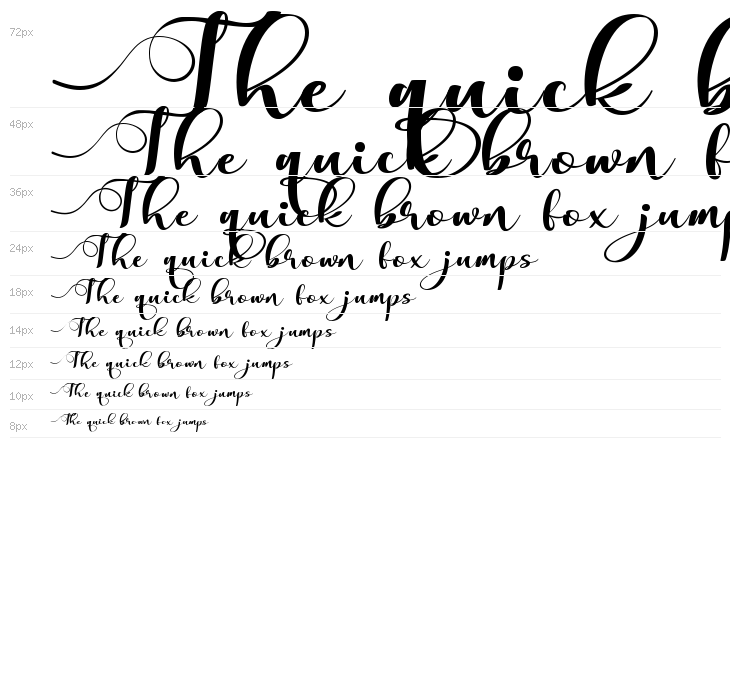 72px The quick b
48px The quick brown f
36px The quick brown fox jump
24px The quick brown fox jumps
18px The quick brown fox jumps
14px The quick brown fox jumps
12px The quick brown fox jumps
10px The quick brown fox jumps
8px The quick brown fox jumps